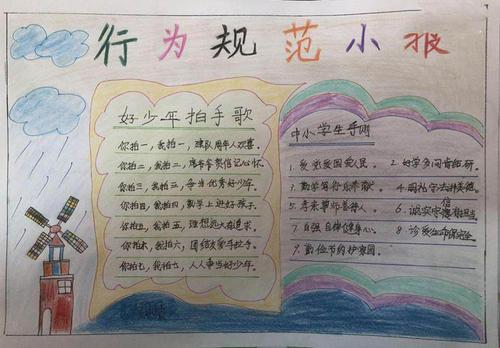 行为规范小报
好少年拍手歌
你拍一,我拍一,建队周年人欢喜。
你拍二,我拍二,席爷爷教信记心怀。
你拍三,我拍三,争当优秀好少年。
你拍四,我拍四,勤学上进好孩子。
你拍五,我拍五,理想远大有追求。
你拍六,我拍六,团结友爱手拉手。
你拍七,我拍七,人人争当好少年。
中小学生守则
1.爱党爱国爱人民。 2.好学多问肯钻研。
3.勤学笃行乐奉献。 4.明礼守法讲美德。
5.孝亲尊师善待人。 6.诚实守信有担当。
7.自强自律健身心。 8.珍爱生命保安全。
9.勤俭节约护家园。